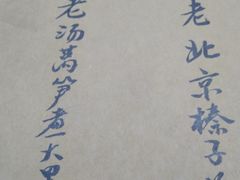 老北京榛子
老汤莴笋煮大